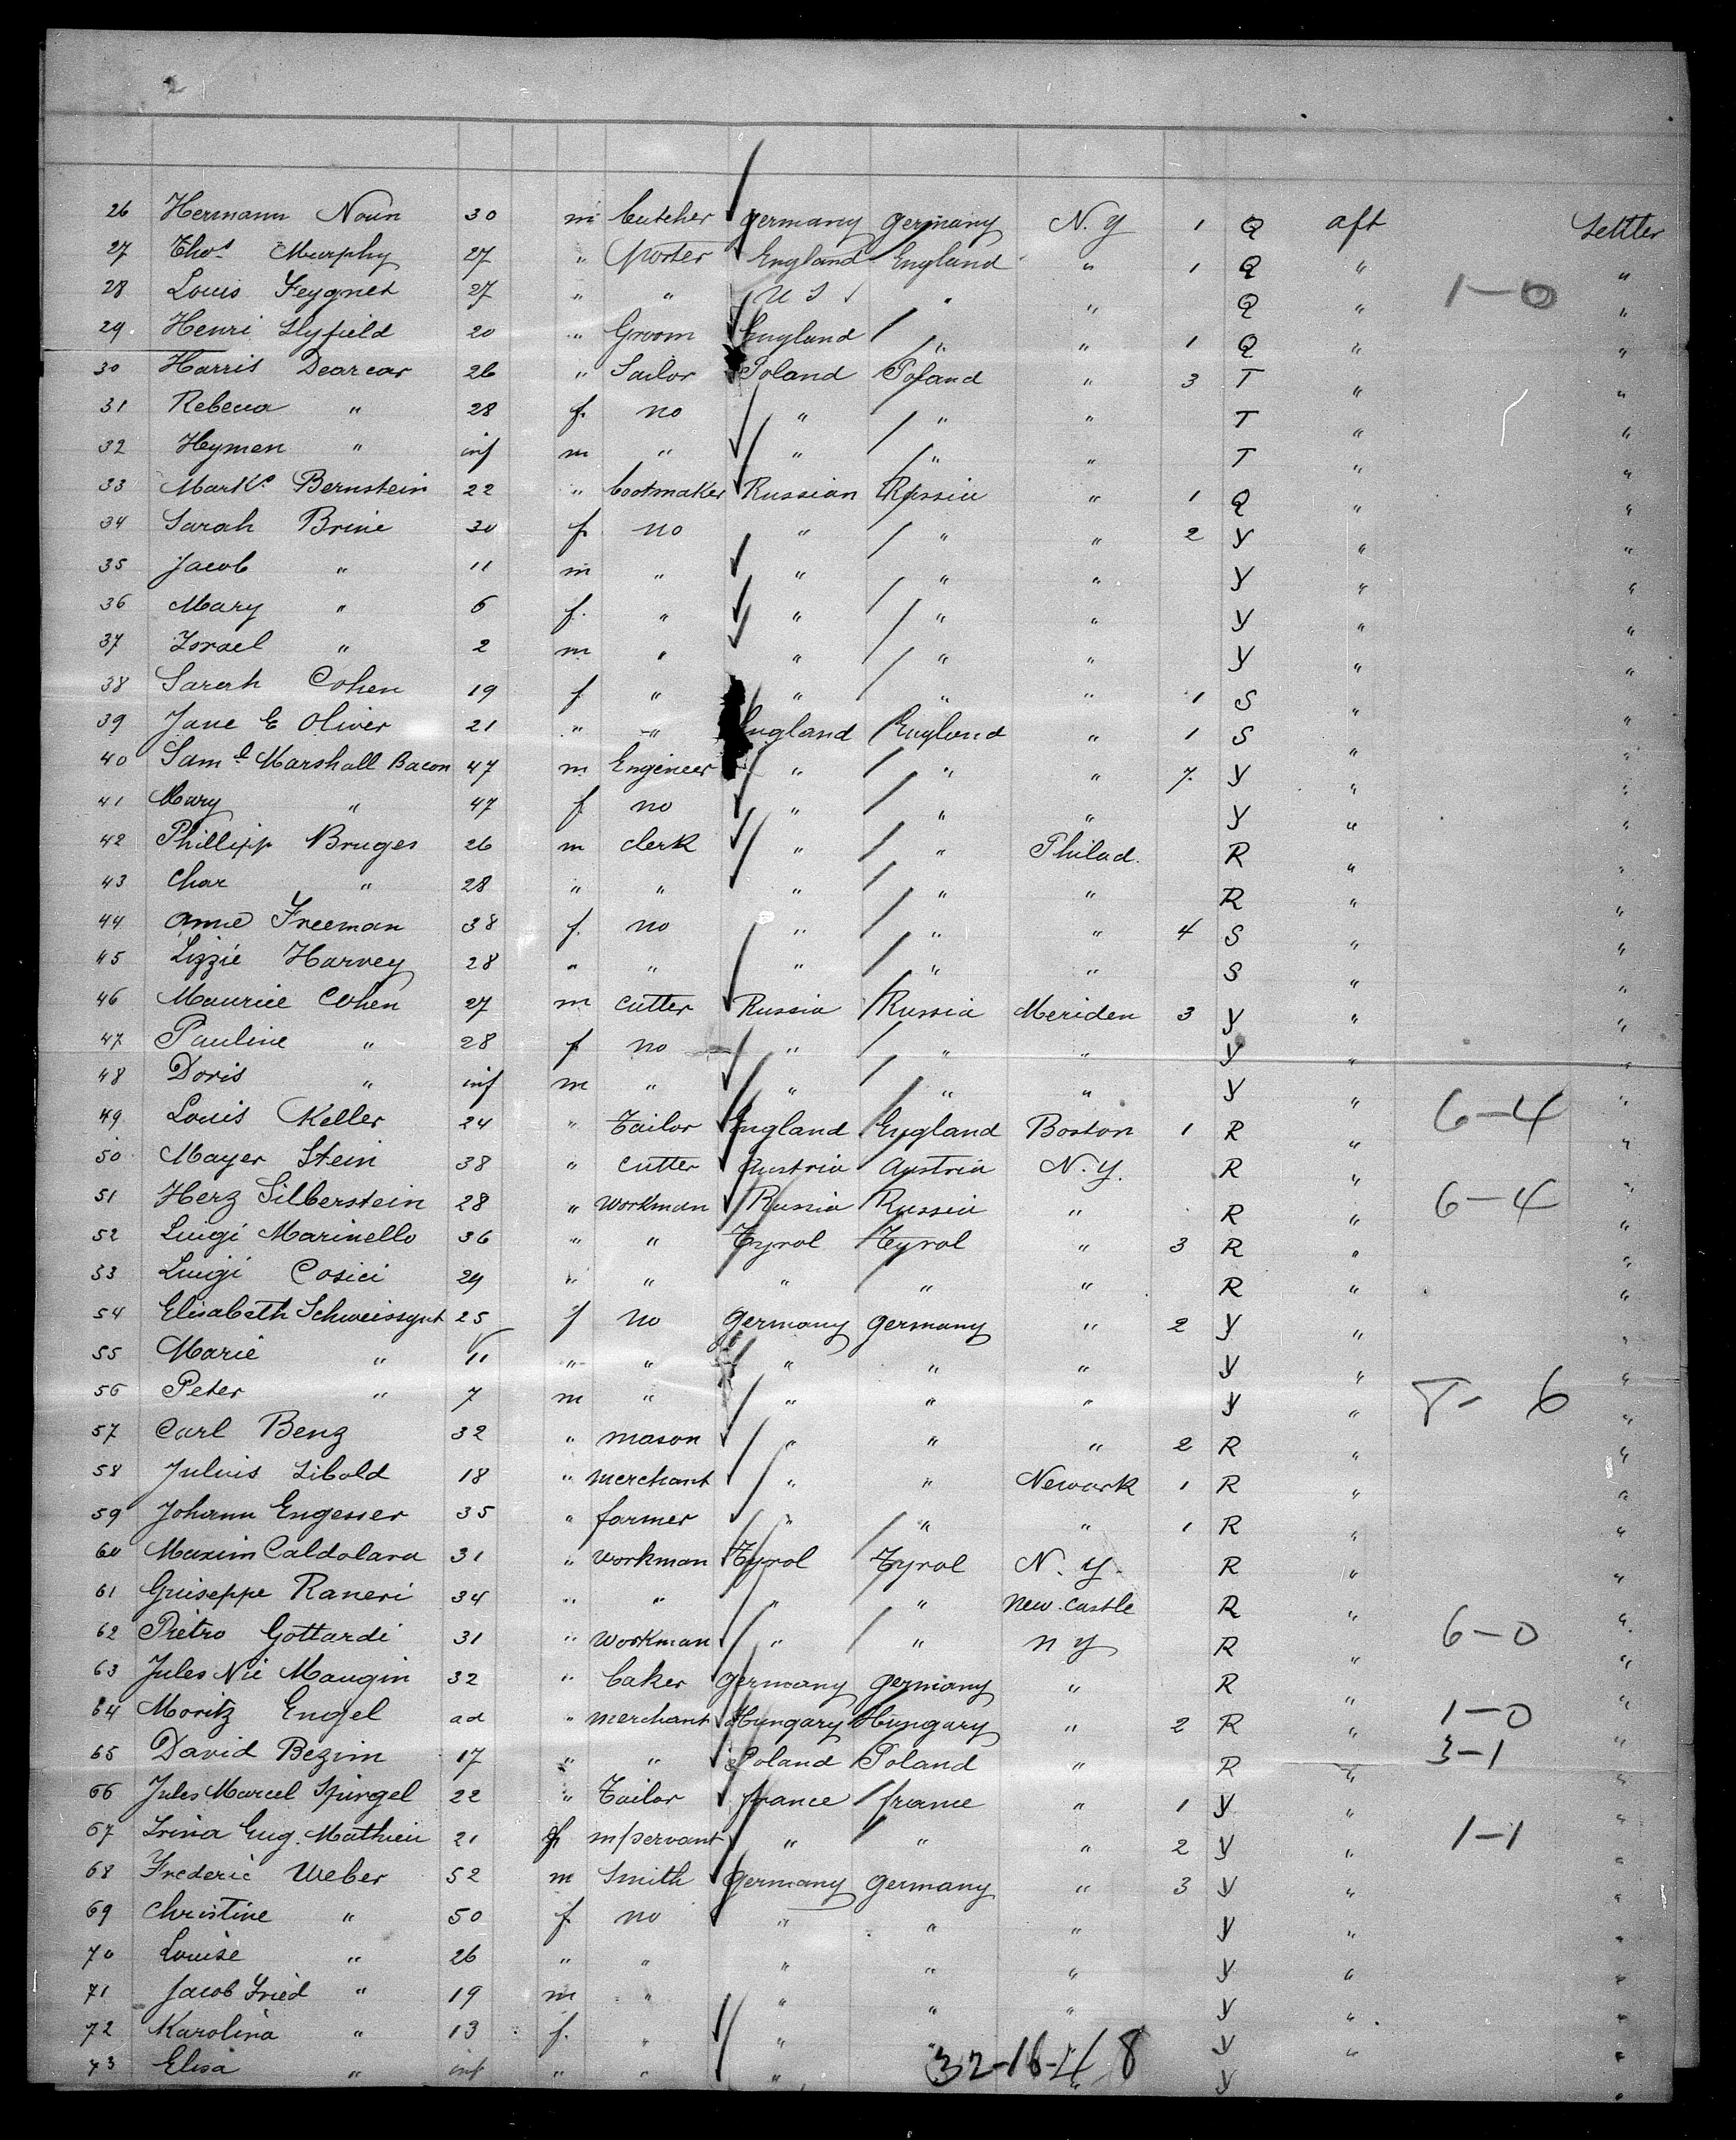 2
26 Hermann Noun 30 m butcher germany germany N. Y 1 Q aft Settler
27 Thos Murphy 27 " Porter England England " 1 Q " "
28 Louis Feygnet 27 " " U S " " Q " 1-0 "
29 Henri Slyfield 20 " Groom England " " 1 Q " "
30 Harris Dearcar 26 " Sailor Poland Poland " 3 T " "
31 Rebecca " 28 f. no " " " T " "
32 Heyman " inf m " " " " T " "
33 Marks Bernstein 22 " bootmaker Russian Russia " 1 Q " "
34 Sarah Brine 30 f no " " " 2 Y " "
35 Jacob " 11 m " " " " Y " "
36 Mary " 6 f. " " " " Y " "
37 Israel " 2 m " " " " Y " "
38 Sarah Cohen 19 f " " " " 1 S " "
39 Jane E Oliver 21 " " England England " 1 S " "
40 Saml Marshall Bacon 47 m Engineer " " " 7. Y " "
41 Mary " 47 f no " " " Y " "
42 Phillipp Bruges 26 m clerk " " Philad. R " "
43 Char " 28 " " " " " R " "
44 Anne Freeman 38 f. no " " " 4 S " "
45 Lizzie Harvey 28 " " " " " S " "
46 Maurice Cohen 27 m cutter Russia Russia Meriden 3 Y " "
47 Pauline " 28 f no " " " Y " "
48 Doris " inf m " " " " Y " "
49 Louis Keller 24 " Tailor England England Boston 1 R " 6-4 "
50 Mayer Stein 38 " cutter Austria Austria N. Y. R " "
51 Herz Silberstein 28 " workman Russia Russia " R " 6-4 "
52 Luigi Marinello 36 " " Tyrol Tyrol " 3 R " "
53 Luigi Cosici 29 " " " " " R " "
54 Elisabeth Schweissgut 25 f no germany germany " 2 Y " "
55 Marie " 11 " " " " " Y " "
56 Peter " 7 m " " " " Y " 6 "
57 Carl Benz 32 " mason " " " 2 R " "
58 Julius Libold 18 " merchant " " Newark 1 R " "
59 Johann Engesser 35 " farmer " " " 1 R " "
60 Maxim Caldolara 31 " workman Tyrol Tyrol N. Y. R " "
61 Guiseppe Raneri 34 " " " " new. castle R " "
62 Pietro Gottardi 31 " workman " " n y R " 6-0 "
63 Jules Nie Maugin 32 " baker germany germany " R " "
64 Moritz Engel ad " merchant Hungary Hungary " 2 R " 1-0 "
65 David Bezim 17 " " Poland Poland " R " 3-1 "
66 Jules Marcel Spirgel 22 " Tailor france france " 1 Y " "
67 Irina Eug. Mathieu 21 f m/servant " " " 2 Y " 1-1 "
68 Frederic Weber 52 m Smith germany germany " 3 Y " "
69 Christine " 50 f no " " " Y " "
70 Louise " 26 " " " " " Y " "
71 Jacob Fried " 19 m " " " " Y " "
72 Karolina " 13 f. " " " Y " "
73 Elisa " inf " " " " Y "
32-16-4 8